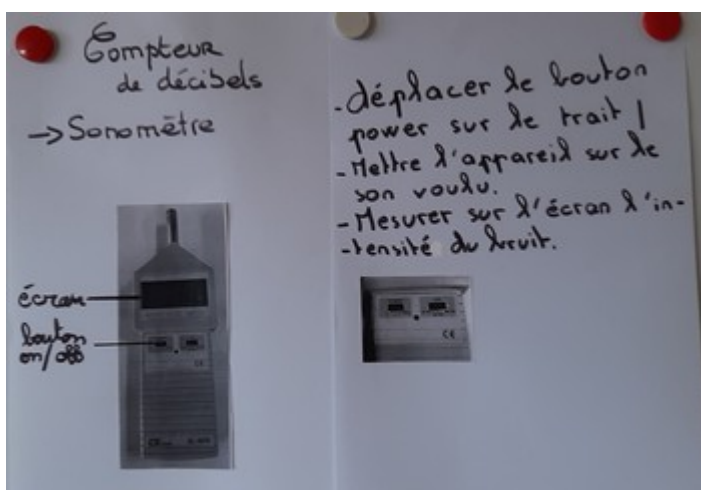 Compteur
de décibels
→ Sonomètre
écran
bouton
on/off
- déplacer le bouton
power sur le trait |
- Mettre l'appareil sur le
son voulu.
- Mesurer sur l'écran l'in-
-tensité du bruit.
CE
CE